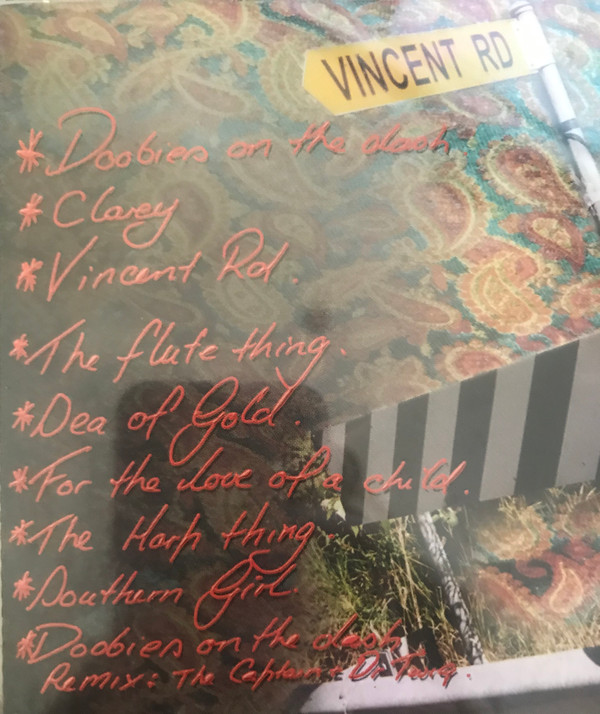 VINCENT RD
* Doobies on the dash
* Clavey
* Vincent Rd.
* The flute thing.
* Sea of Gold.
* For the love of a child.
* The Harp thing.
* Southern Girl.
* Doobies on the dash
Remix: The Captain + Dr